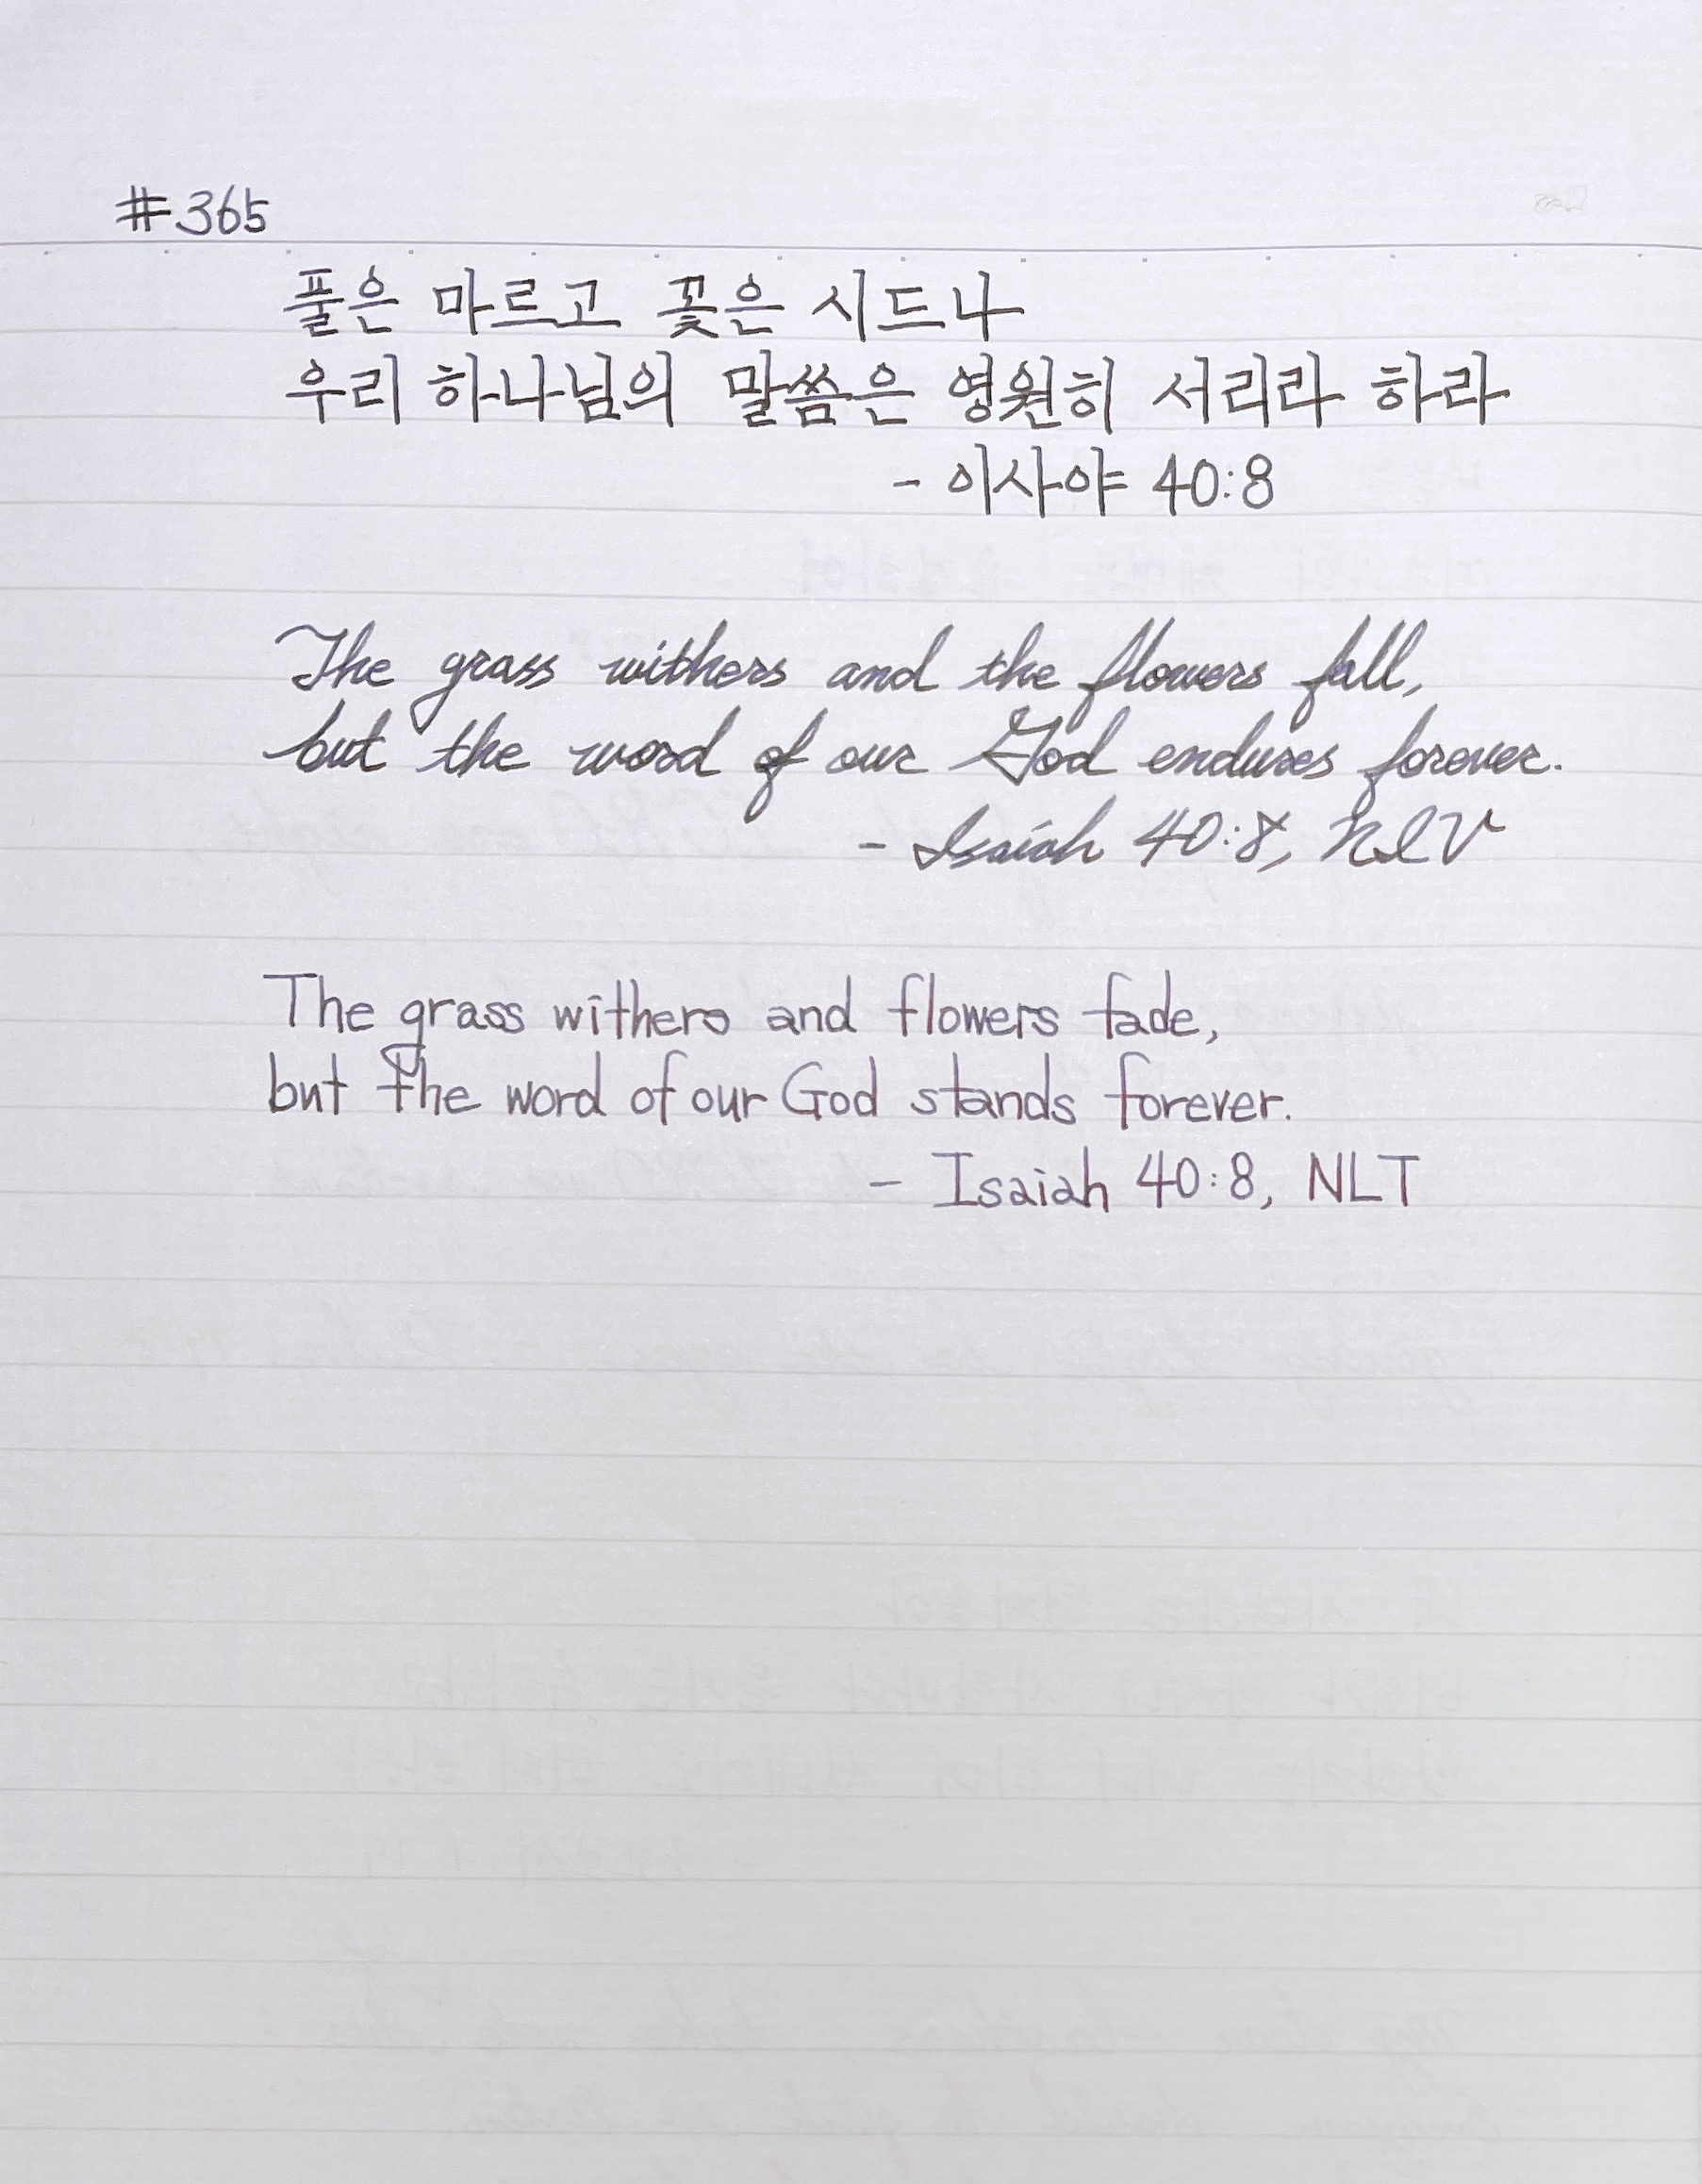 #365
풀은 마르고 꽃은 시드나
우리 하나님의 말씀은 영원히 서리라 하라
- 이사야 40:8
The grass withers and the flowers fall,
but the word of our God endures forever.
- Isaiah 40:8, NIV
The grass withers and flowers fade,
but the word of our God stands forever.
- Isaiah 40:8, NLT